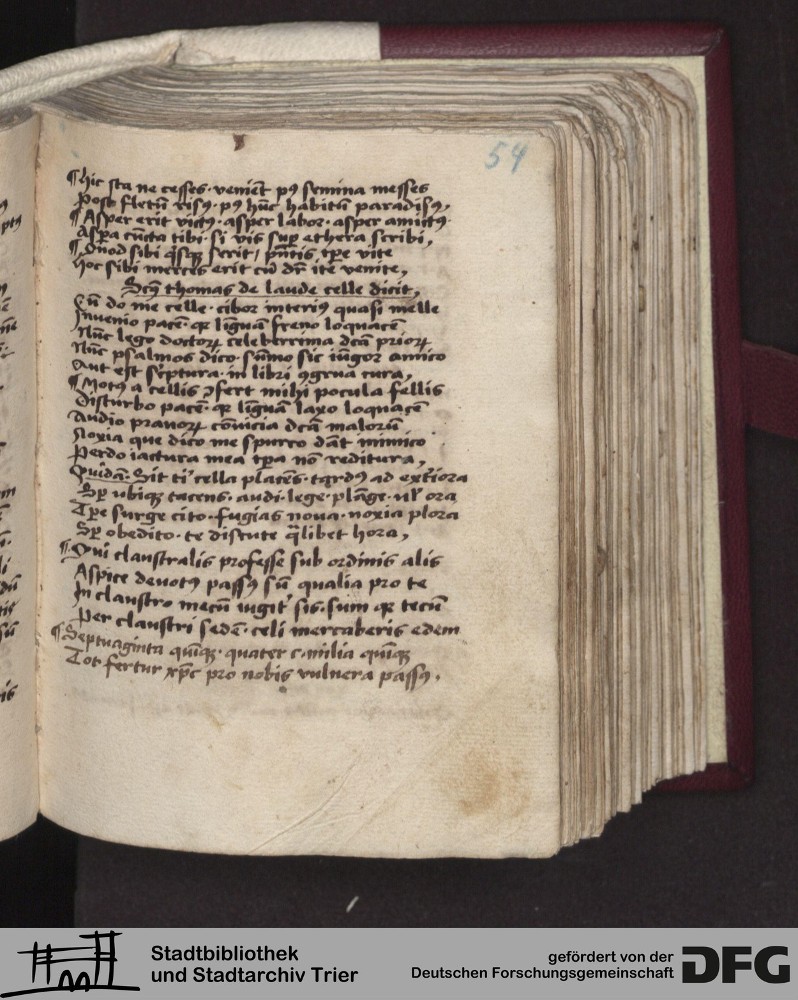 54
¶ hic sta ne cesses · veniēt pꝰ semina messes
Post fletū risꝰ · pꝰ hūc habitū paradisꝰ,
¶ Asper erit victꝰ · asper labor · asper amictꝰ
Aspa cūcta tibi · si vis sup ethera scribi,
¶ Quod sibi serit / pñtis tpe vite
hoc sibi merces erit cū dr̄ ite venite,
Scūs thomas de laude celle dicit,
Cū do me celle · cibor interiꝰ quasi melle
Invenio pacē · qꝫ liguā freno loquacē
Nūc lego doctoꝝ celeberrima dcā prioꝝ
Nūc psalmos dico · sūmo sic iūgor amico
Aut est scͥptura · in libri ꝯgrua cura,
¶ Motꝰ a cellis ꝯfert mihi pocula fellis
Disturbo pacē · qꝫ liguā laxo loquacē
Audio pravoꝝ cōvicia dcā maloꝝ
Noxia que dico me spurco dāt inimico
Perdo iactura mea tpa nō reditura,
Quidā. Sit tiͥ cella placēs · tardꝰ ad exͥtiora
Sꝑ ubiqꝫ tacens · audi · lege · plāge · ul' ora
Tpe surge cito · fugias nova · noxia plora
Sꝑ obedito · te discute q̄libet hora,
¶ Qui claustralis professe sub ordinis alis
Aspice devotꝰ passꝰ sū qualia pro te
In claustro mecū iugit' sis · sum qꝫ tecū
Per claustri sedē · celi mercaberis edem
¶ Septuaginta quīqꝫ · quater c · milia quīqꝫ
Tot fertur xp̄c pro nobis vulnera passꝰ.
Stadtbibliothek
und Stadtarchiv Trier
gefördert von der
Deutschen Forschungsgemeinschaft
DFG